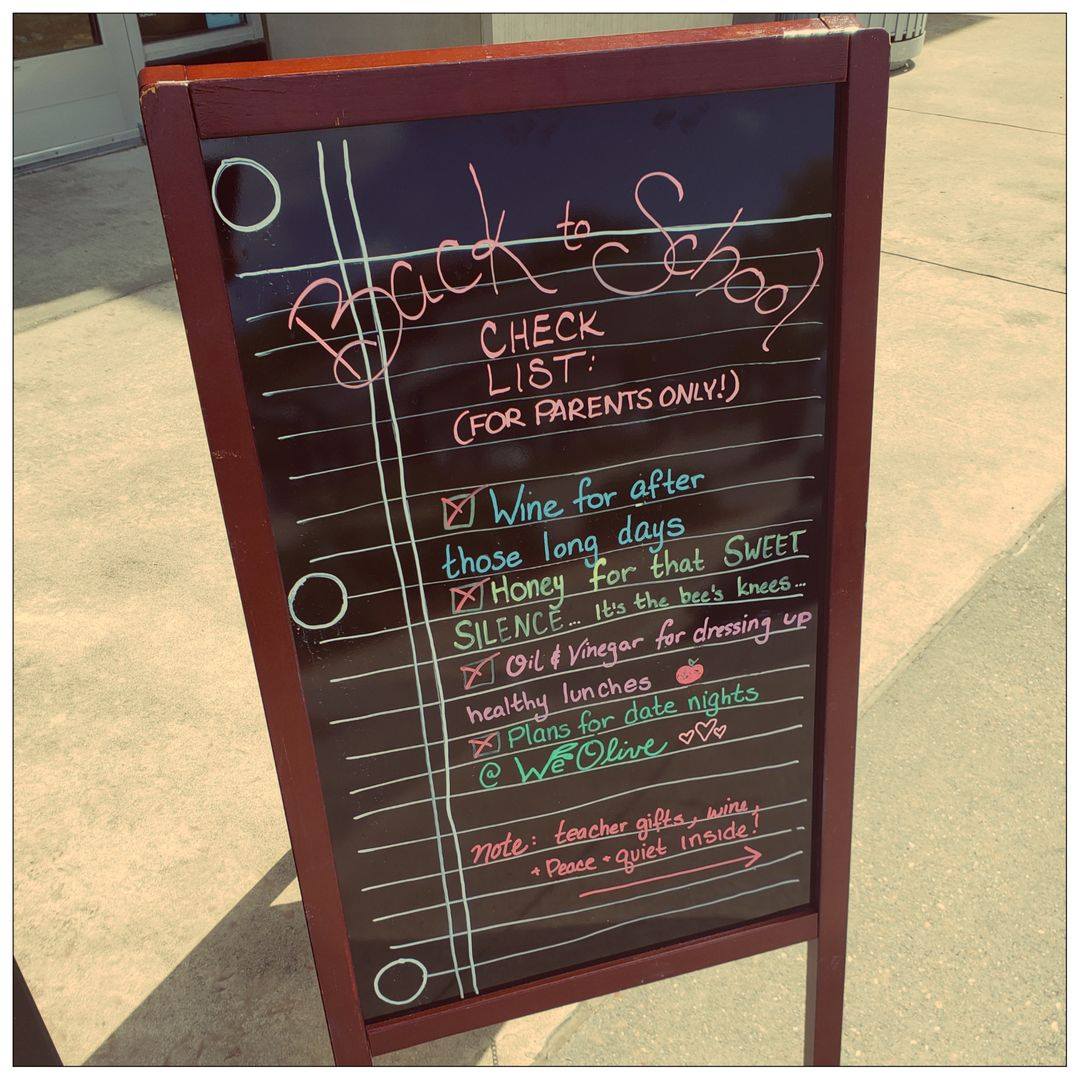 Back to School
CHECK
LIST:
(FOR PARENTS ONLY!)
Wine for after
those long days
Honey for that SWEET
SILENCE... It's the bee's knees...
Oil & Vinegar for dressing up
healthy lunches
Plans for date nights
@ We Olive
note: teacher gifts, wine,
+ Peace + quiet inside!